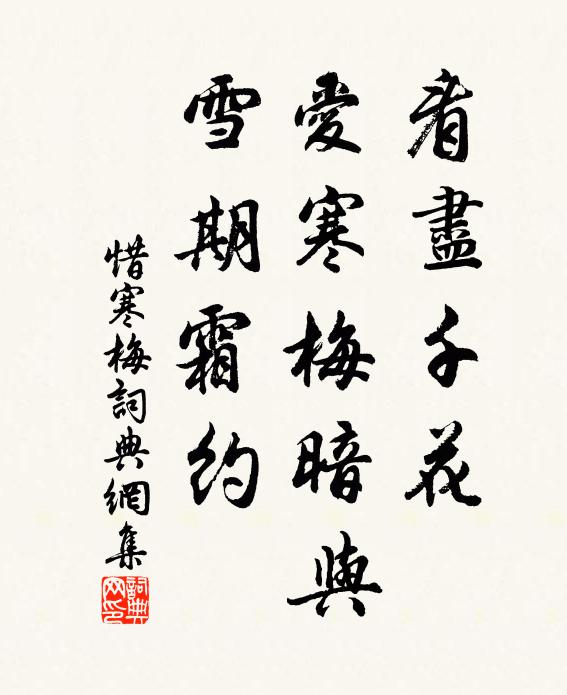 看盡千花
愛寒梅暗與
雪期霜約
惜寒梅詞典網集
詞典网印